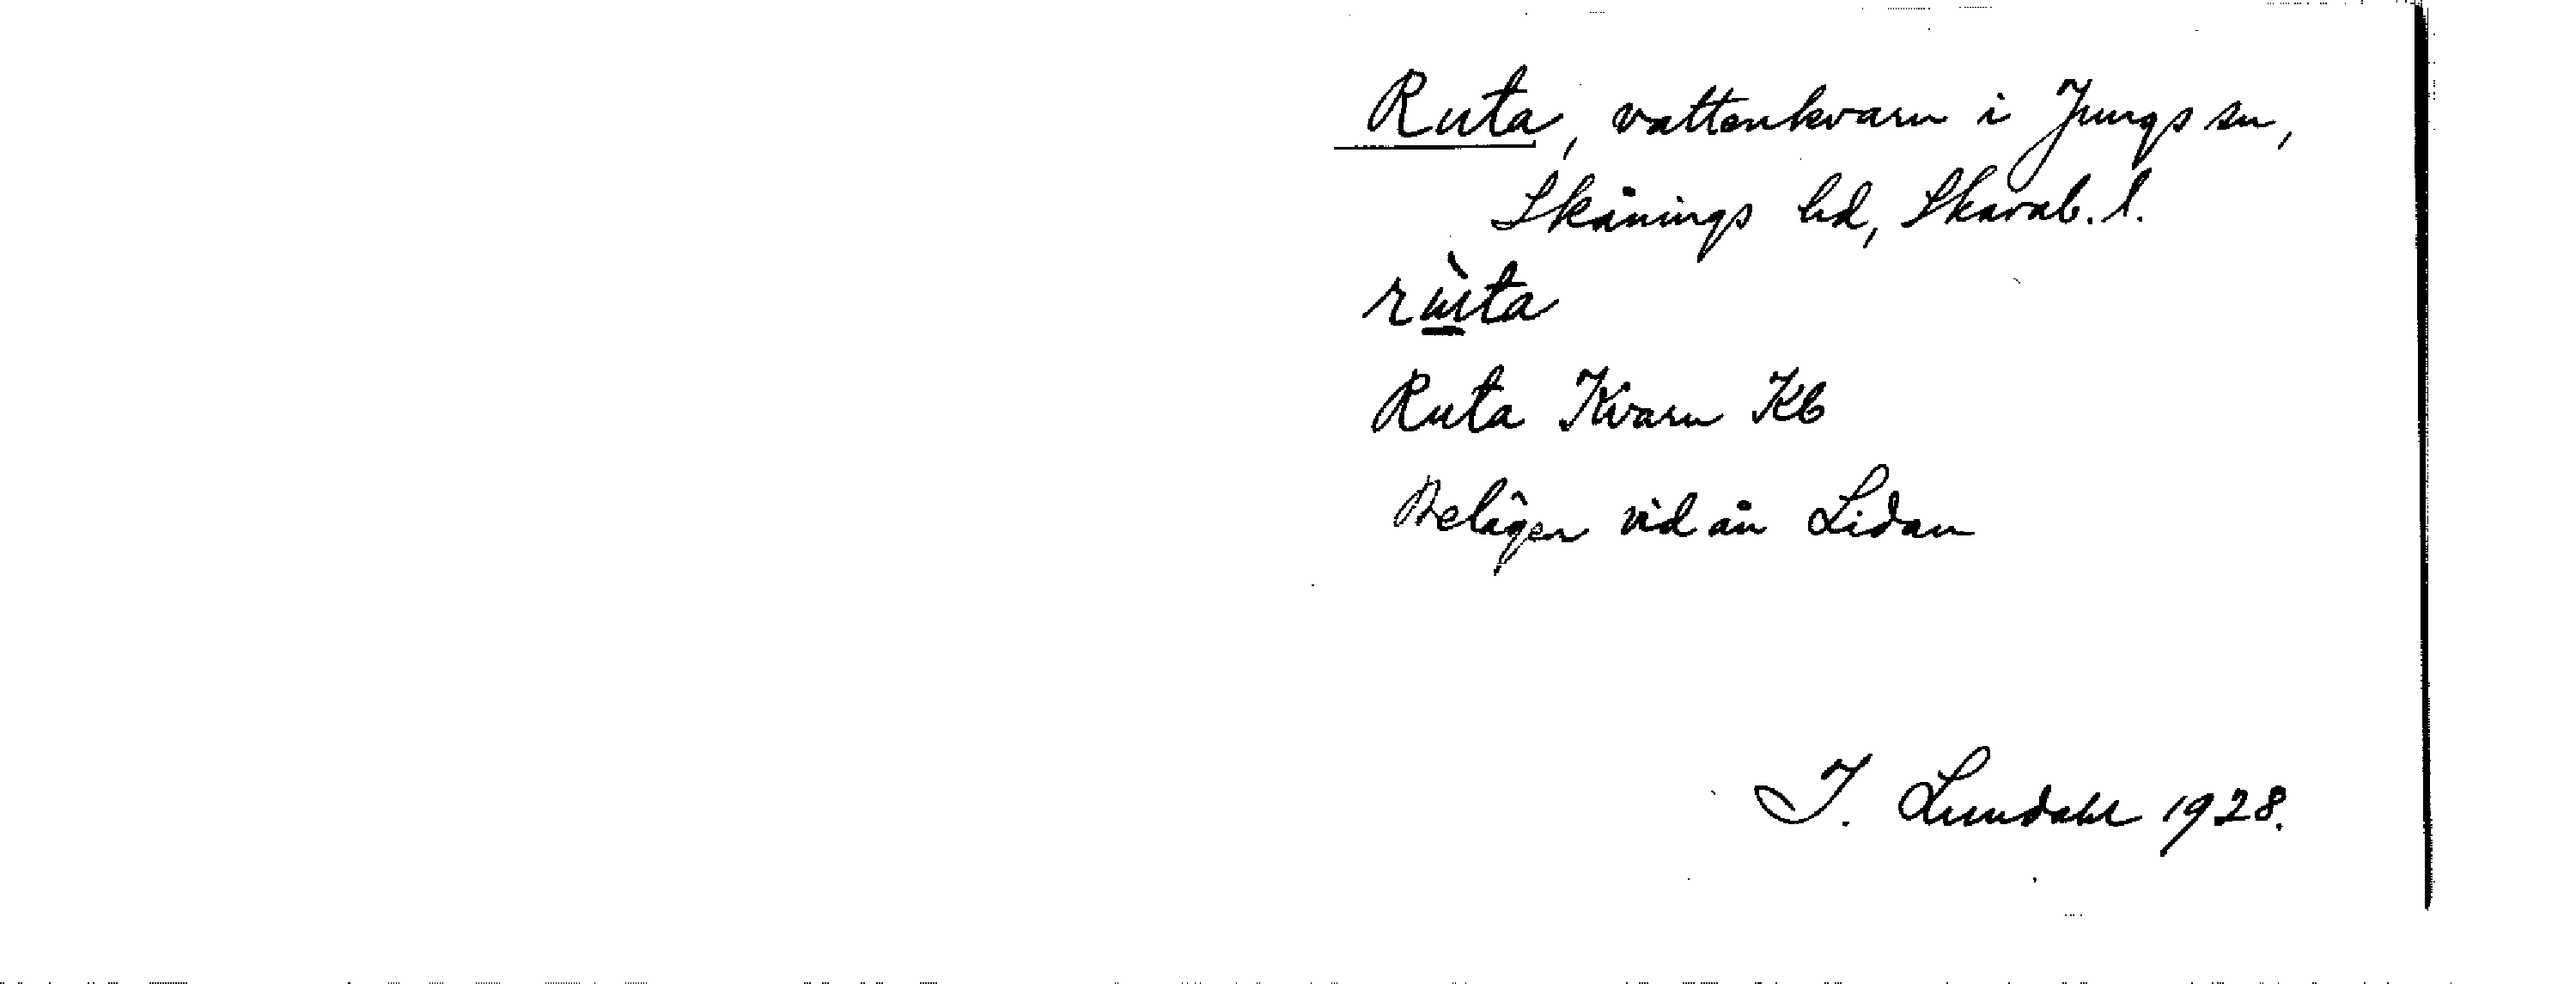 Ruta, vattenkvarn i Jungs sn,
Skånings hd, Skarab. l.
rùta
Ruta Kvarn Kb
Belägen vid ån Lidan
I. Lundahl 1928.